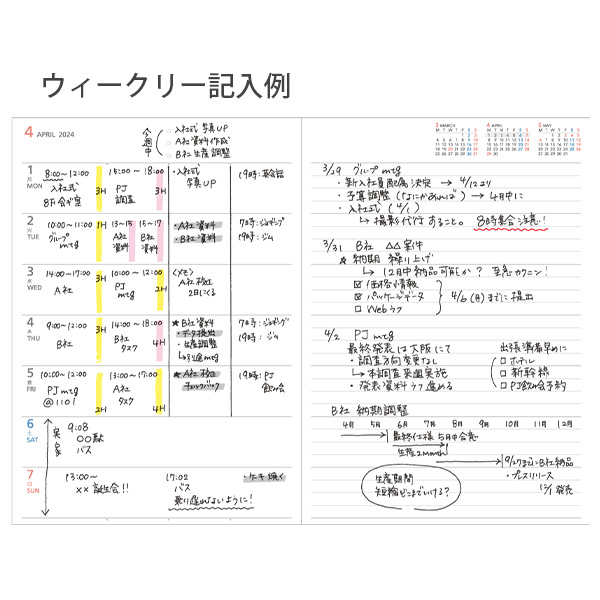 ウィークリー記入例
4 APRIL 2024
今週中
入社式 写真UP
A社 資料作成
B社 生産調整
1 月 MON
8:00〜12:00
入社式
8F会議室
3H
15:00〜18:00
PJ
調査
3H
・入社式
写真UP
19時:英会話
2 火 TUE
10:00〜11:00
グループ
mtg
1H
13〜15
A社
資料
2H
15〜17
B社
資料
2H
・A社 資料
・B社 資料
7時:ジョギング
19時:ジム
3 水 WED
14:00〜17:00
A社
3H
10:00〜12:00
PJ
mtg
2H
<メモ>
A社 校正
2日にくる
4 木 THU
9:00〜12:00
B社
3H
14:00〜18:00
B社
タスク
4H
★B社 資料
・データ提出
・生産調整
7時:ジョギング
19時:ジム
5 金 FRI
10:00〜12:00
PJ mtg
@1101
2H
13:00〜17:00
A社
タスク
4H
★A社 校正
チェックバック
19時:PJ
飲み会
6 土 SAT
実家
9:08
〇〇駅
バス
7 日 SUN
13:00〜
××誕生会!!
17:02
バス
乗り遅れないように!
・ケーキ焼く
3 MARCH
4 APRIL
5 MAY
3/29 グループ mtg
・新入社員配属決定 → 4/12より
・予算調整 → 4月中に
・入社式 (4/1)
→撮影代行すること。8時集合注意!
3/31 B社 △△案件
★納期 繰り上げ
→12月中納品可能か? 至急カクニン!
☑価格情報
☑パッケージデータ
□Webラフ
4/6(月)までに提出
4/2 PJ mtg
最終発表は大阪にて
・調査方向変更なし
→本調査来週実施
・発表資料ラフ進める
出張準備早めに
□ホテル
□新幹線
□PJ飲み会予約
B社 納期調整
4月 5月 6月 7月 8月 9月 10月 11月 12月
最終仕様 5月中合意
生産2month
9/27までにB社納品
・プレスリリース
12/1 発売
生産期間
短縮どこまでいける?